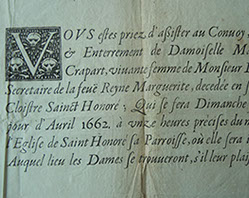 VOVS estes priez d'assister au Convoy,
& Enterrement de Damoiselle M
Crapart, viuante femme de Monsieur
Secretaire de la feuë Reyne Marguerite, decedée en s
Cloistre Sainct Honoré; Qui se fera Dimanche
jour d'Auril 1662. à vnze heures precises du m
l'Eglise de Saint Honoré sa Parroisse, où elle sera i
Auquel lieu les Dames se trouueront, s'il leur plais